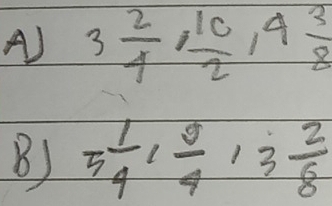 A) 3 2/4, 10/2, 4 3/8
B) 5 1/4, 9/4, 3 2/8